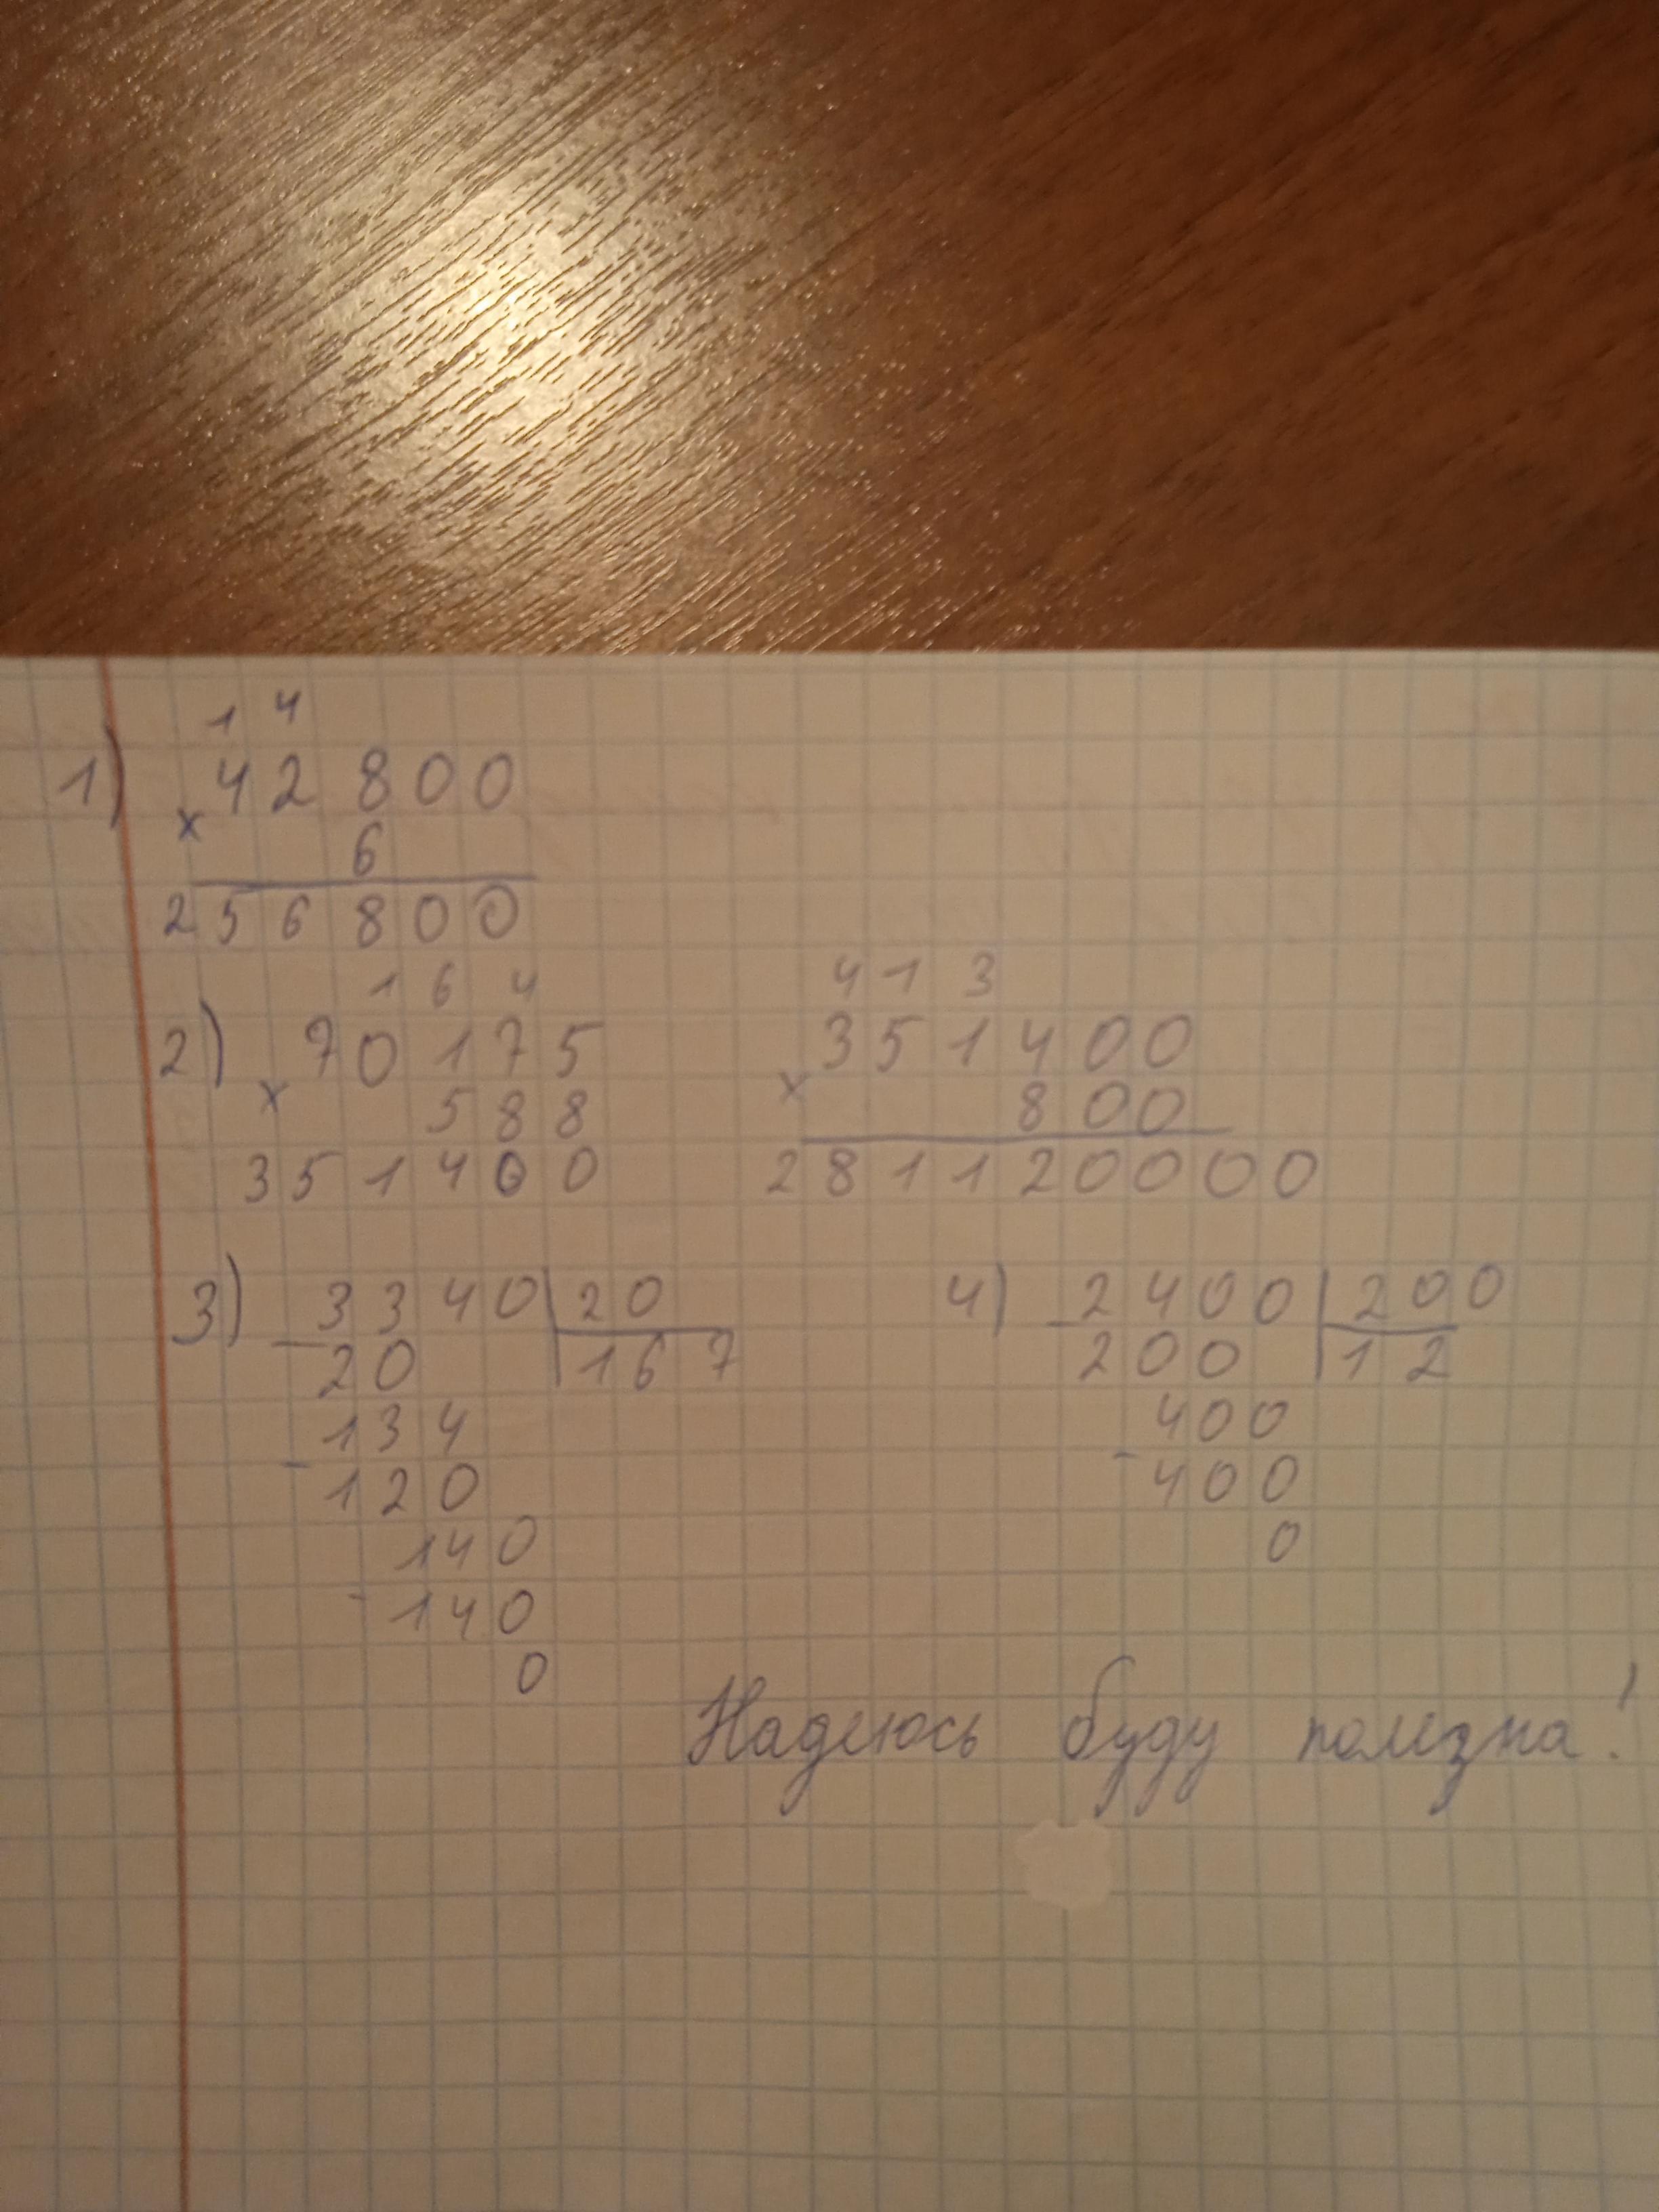 1 4
1) 42800
× 6
256800
1 6 4
2) 70175
× 588
351400
4 1 3
351400
× 800
281120000
3) 3340 20
- 20 167
134
- 120
140
- 140
0
4) - 2400 200
200 12
400
- 400
0
Надеюсь буду полезна!